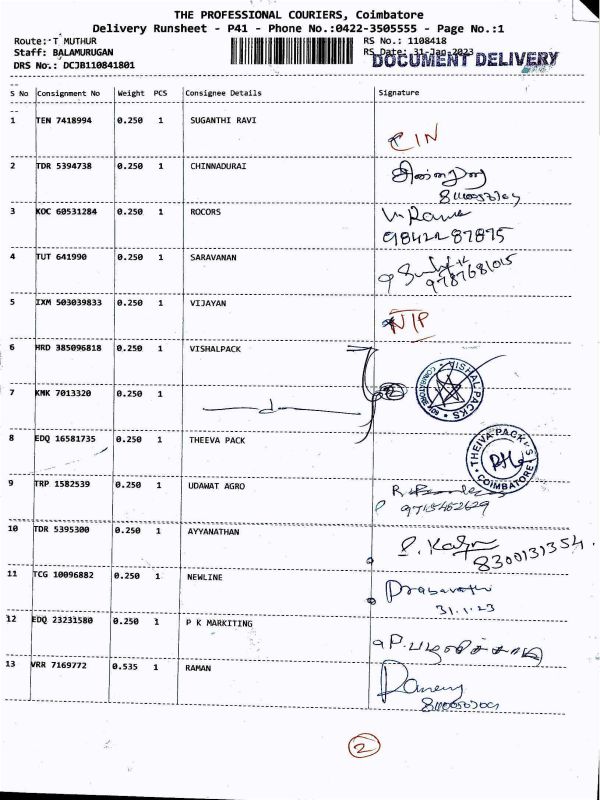 THE PROFESSIONAL COURIERS, Coimbatore
Delivery Runsheet - P41 - Phone No.:0422-3505555 - Page No.:1
Route:- T MUTHUR
RS No.: 1108418
Staff: BALAMURUGAN
RS Date: 31-Jan-2023
DOCUMENT DELIVERY
DRS No.: DCJB110841801
S No Consignment No Weight PCS Consignee Details Signature
1 TEN 7418994 0.250 1 SUGANTHI RAVI
CIN
2 TDR 5394738 0.250 1 CHINNADURAI
3 KOC 60531284 0.250 1 ROCORS
98422 87875
4 TUT 641990 0.250 1 SARAVANAN
9787681015
5 IXM 503039833 0.250 1 VIJAYAN
NTP
6 HRD 385096818 0.250 1 VISHALPACK
VISHAL PACKS
7 KMK 7013320 0.250 1
8 EDQ 16581735 0.250 1 THEEVA PACK
THEIVA PACKS
COIMBATORE
9 TRP 1582539 0.250 1 UDAWAT AGRO
9715462629
10 TDR 5395300 0.250 1 AYYANATHAN
8300131354
11 TCG 10096882 0.250 1 NEWLINE
31.1.23
12 EDQ 23231580 0.250 1 P K MARKITING
13 VRR 7169772 0.535 1 RAMAN
2